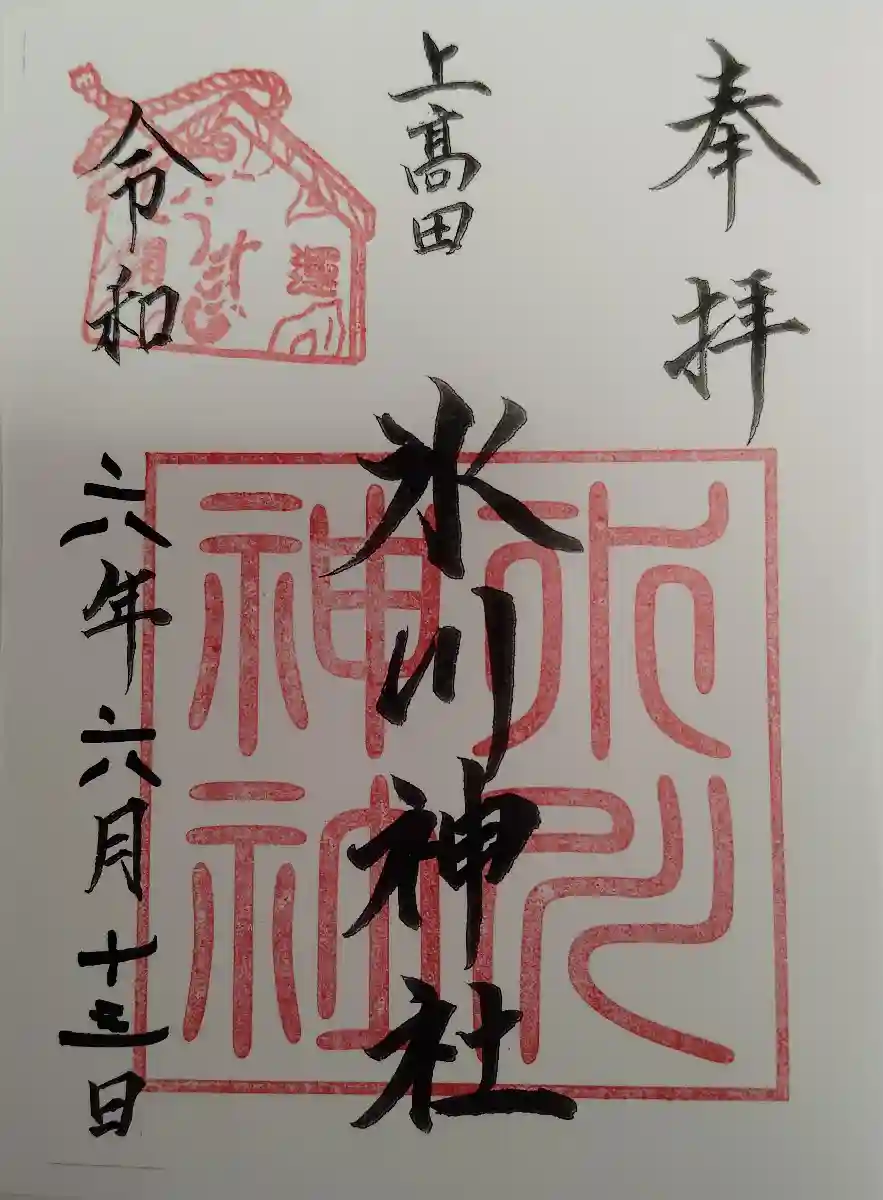 奉拝
上髙田
氷川神社
令和六年六月十三日
氷川神社
開運